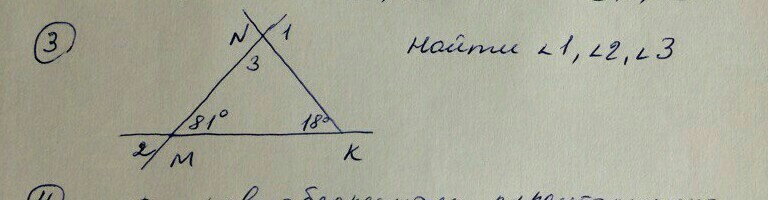 3
N 1
3
Найти ∠1, ∠2, ∠3
81° 18°
2 M K